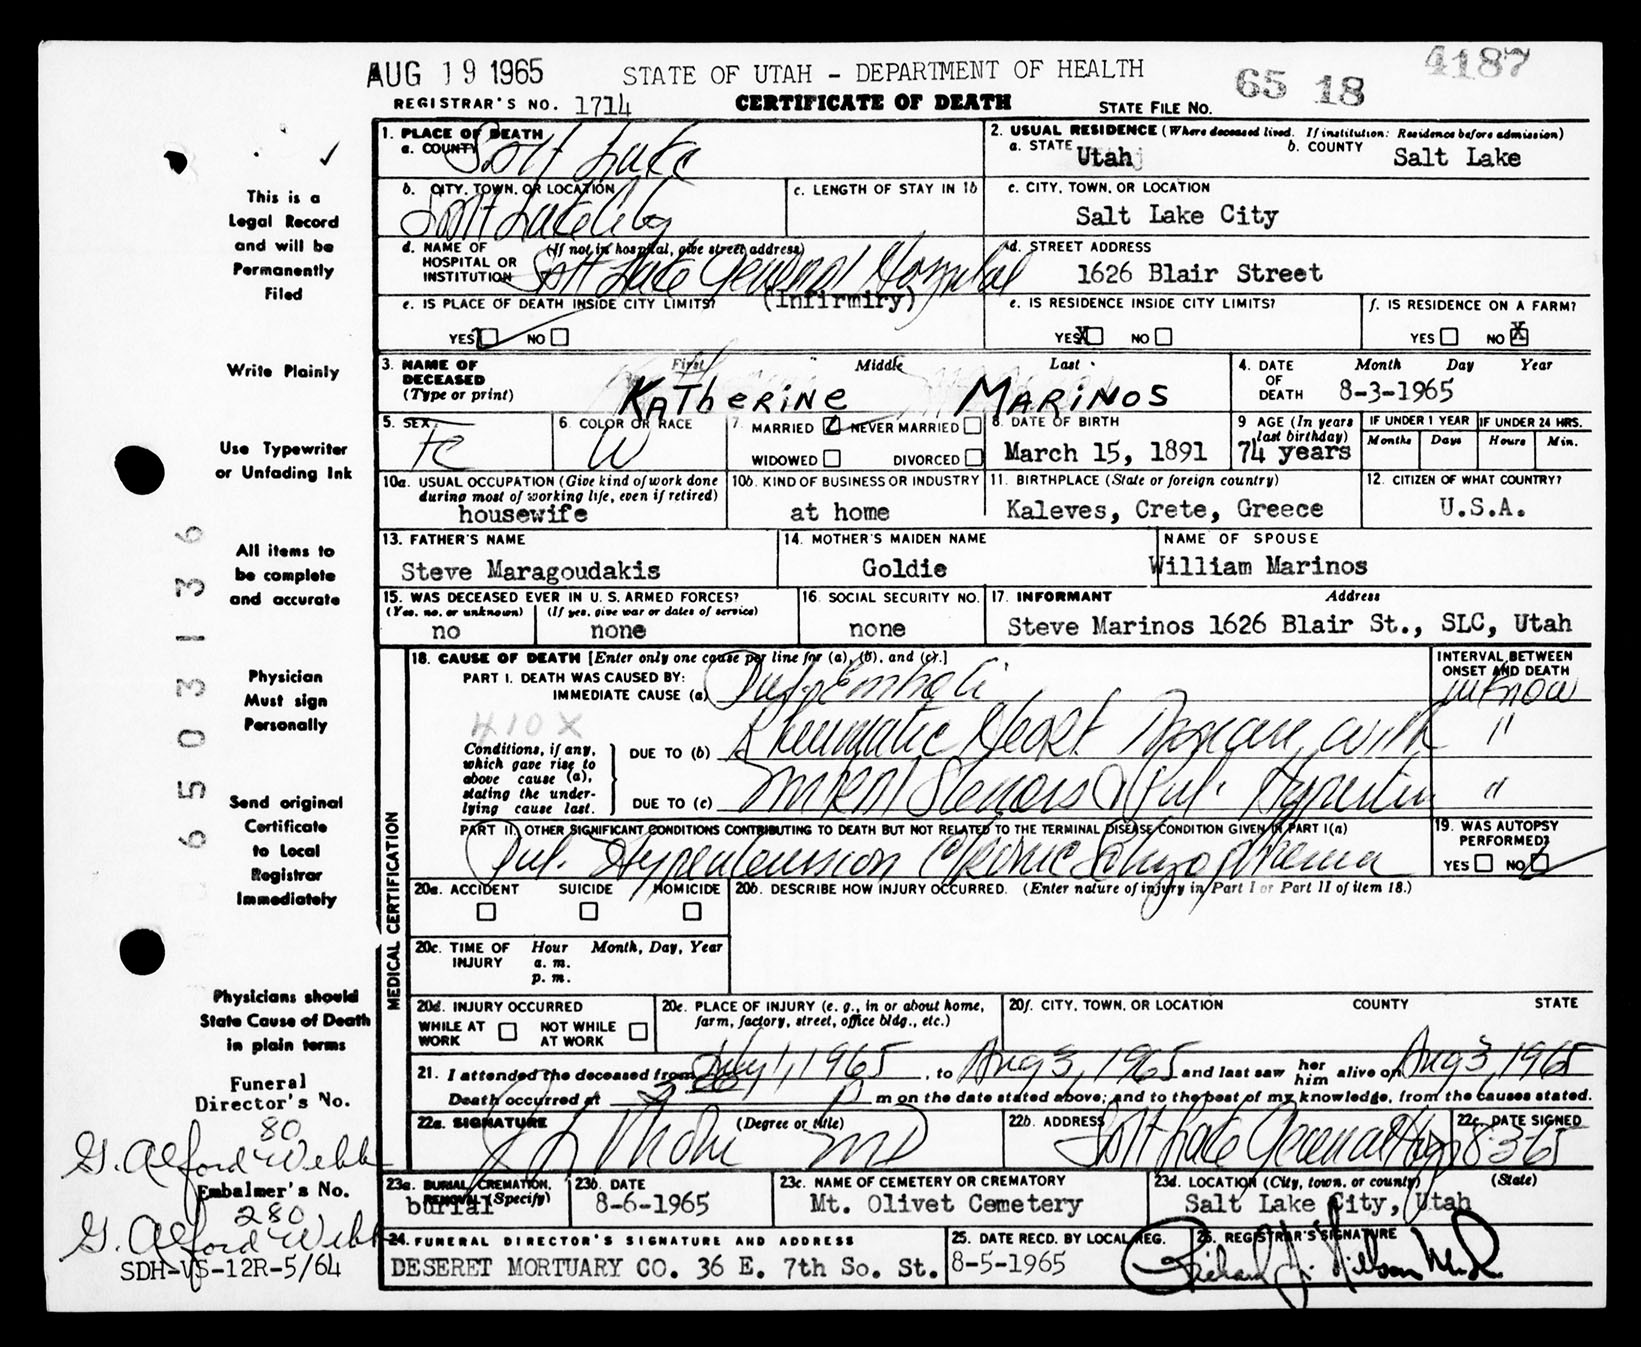 AUG 19 1965
STATE OF UTAH - DEPARTMENT OF HEALTH
4187
REGISTRAR'S NO. 1714
CERTIFICATE OF DEATH
STATE FILE NO. 65 18
1. PLACE OF DEATH
a. COUNTY Salt Lake
2. USUAL RESIDENCE (Where deceased lived. If institution: Residence before admission)
a. STATE Utah
b. COUNTY Salt Lake
b. CITY, TOWN, OR LOCATION
Salt Lake City
c. LENGTH OF STAY IN 1b
c. CITY, TOWN, OR LOCATION
Salt Lake City
d. NAME OF HOSPITAL OR INSTITUTION (If not in hospital, give street address)
Salt Lake General Hospital
(Infirmiry)
d. STREET ADDRESS
1626 Blair Street
e. IS PLACE OF DEATH INSIDE CITY LIMITS?
YES NO
e. IS RESIDENCE INSIDE CITY LIMITS?
YES X NO
f. IS RESIDENCE ON A FARM?
YES NO X
3. NAME OF DECEASED (Type or print)
First Middle Last
KATherINe MARINOS
4. DATE OF DEATH
Month Day Year
8-3-1965
5. SEX
Fe
6. COLOR OR RACE
W
7. MARRIED NEVER MARRIED
WIDOWED DIVORCED
8. DATE OF BIRTH
March 15, 1891
9 AGE (In years last birthday)
74 years
IF UNDER 1 YEAR
Months Days
IF UNDER 24 HRS.
Hours Min.
10a. USUAL OCCUPATION (Give kind of work done during most of working life, even if retired)
housewife
10b. KIND OF BUSINESS OR INDUSTRY
at home
11. BIRTHPLACE (State or foreign country)
Kaleves, Crete, Greece
12. CITIZEN OF WHAT COUNTRY?
U.S.A.
13. FATHER'S NAME
Steve Maragoudakis
14. MOTHER'S MAIDEN NAME
Goldie
NAME OF SPOUSE
William Marinos
15. WAS DECEASED EVER IN U. S. ARMED FORCES?
(Yes, no, or unknown) (If yes, give war or dates of service)
no none
16. SOCIAL SECURITY NO.
none
17. INFORMANT Address
Steve Marinos 1626 Blair St., SLC, Utah
MEDICAL CERTIFICATION
18. CAUSE OF DEATH [Enter only one cause per line for (a), (b), and (c).]
INTERVAL BETWEEN ONSET AND DEATH
PART I. DEATH WAS CAUSED BY:
IMMEDIATE CAUSE (a) Pul. Emboli
unknow
410X
Conditions, if any, which gave rise to above cause (a), stating the underlying cause last.
DUE TO (b) Rheumatic Heart Disease, with "
DUE TO (c) Mitral Stenosis & Pul. Hyperten "
PART II. OTHER SIGNIFICANT CONDITIONS CONTRIBUTING TO DEATH BUT NOT RELATED TO THE TERMINAL DISEASE CONDITION GIVEN IN PART I(a)
Pul. Hypertension Chronic Schizophrenia
19. WAS AUTOPSY PERFORMED?
YES NO
20a. ACCIDENT SUICIDE HOMICIDE
20b. DESCRIBE HOW INJURY OCCURRED. (Enter nature of injury in Part I or Part II of item 18.)
20c. TIME OF INJURY Hour Month, Day, Year
a. m.
p. m.
20d. INJURY OCCURRED
WHILE AT WORK NOT WHILE AT WORK
20e. PLACE OF INJURY (e. g., in or about home, farm, factory, street, office bldg., etc.)
20f. CITY, TOWN, OR LOCATION COUNTY STATE
21. I attended the deceased from July 1, 1965, to Aug 3, 1965 and last saw her him alive on Aug 3, 1965
Death occurred at P m on the date stated above; and to the best of my knowledge, from the causes stated.
22a. SIGNATURE (Degree or title)
MD
22b. ADDRESS
Salt Lake General Hosp
22c. DATE SIGNED
8-3-65
23a. BURIAL, CREMATION, REMOVAL (Specify)
burial
23b. DATE
8-6-1965
23c. NAME OF CEMETERY OR CREMATORY
Mt. Olivet Cemetery
23d. LOCATION (City, town, or county) (State)
Salt Lake City, Utah
24. FUNERAL DIRECTOR'S SIGNATURE AND ADDRESS
DESERET MORTUARY CO. 36 E. 7th So. St.
25. DATE RECD. BY LOCAL REG.
8-5-1965
26. REGISTRAR'S SIGNATURE
This is a
Legal Record
and will be
Permanently
Filed
Write Plainly
Use Typewriter
or Unfading Ink
All items to
be complete
and accurate
Physician
Must sign
Personally
Send original
Certificate
to Local
Registrar
Immediately
Physicians should
State Cause of Death
in plain terms
Funeral
Director's No.
80
G. Alford Webb
Embalmer's No.
280
G. Alford Webb
SDH-VS-12R-5/64
6503136